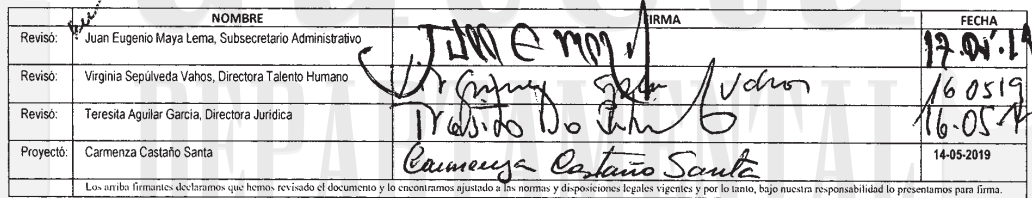 NOMBRE FIRMA FECHA
Revisó: Juan Eugenio Maya Lema, Subsecretario Administrativo
Revisó: Virginia Sepúlveda Vahos, Directora Talento Humano 16 0519
Revisó: Teresita Aguilar Garcia, Directora Juridica 16-05-
Proyectó: Carmenza Castaño Santa Carmenza Castaño Santa 14-05-2019
Los arriba firmantes declaramos que hemos revisado el documento y lo encontramos ajustado a las normas y disposiciones legales vigentes y por lo tanto, bajo nuestra responsabilidad lo presentamos para firma.
DEPARTAMENTAL